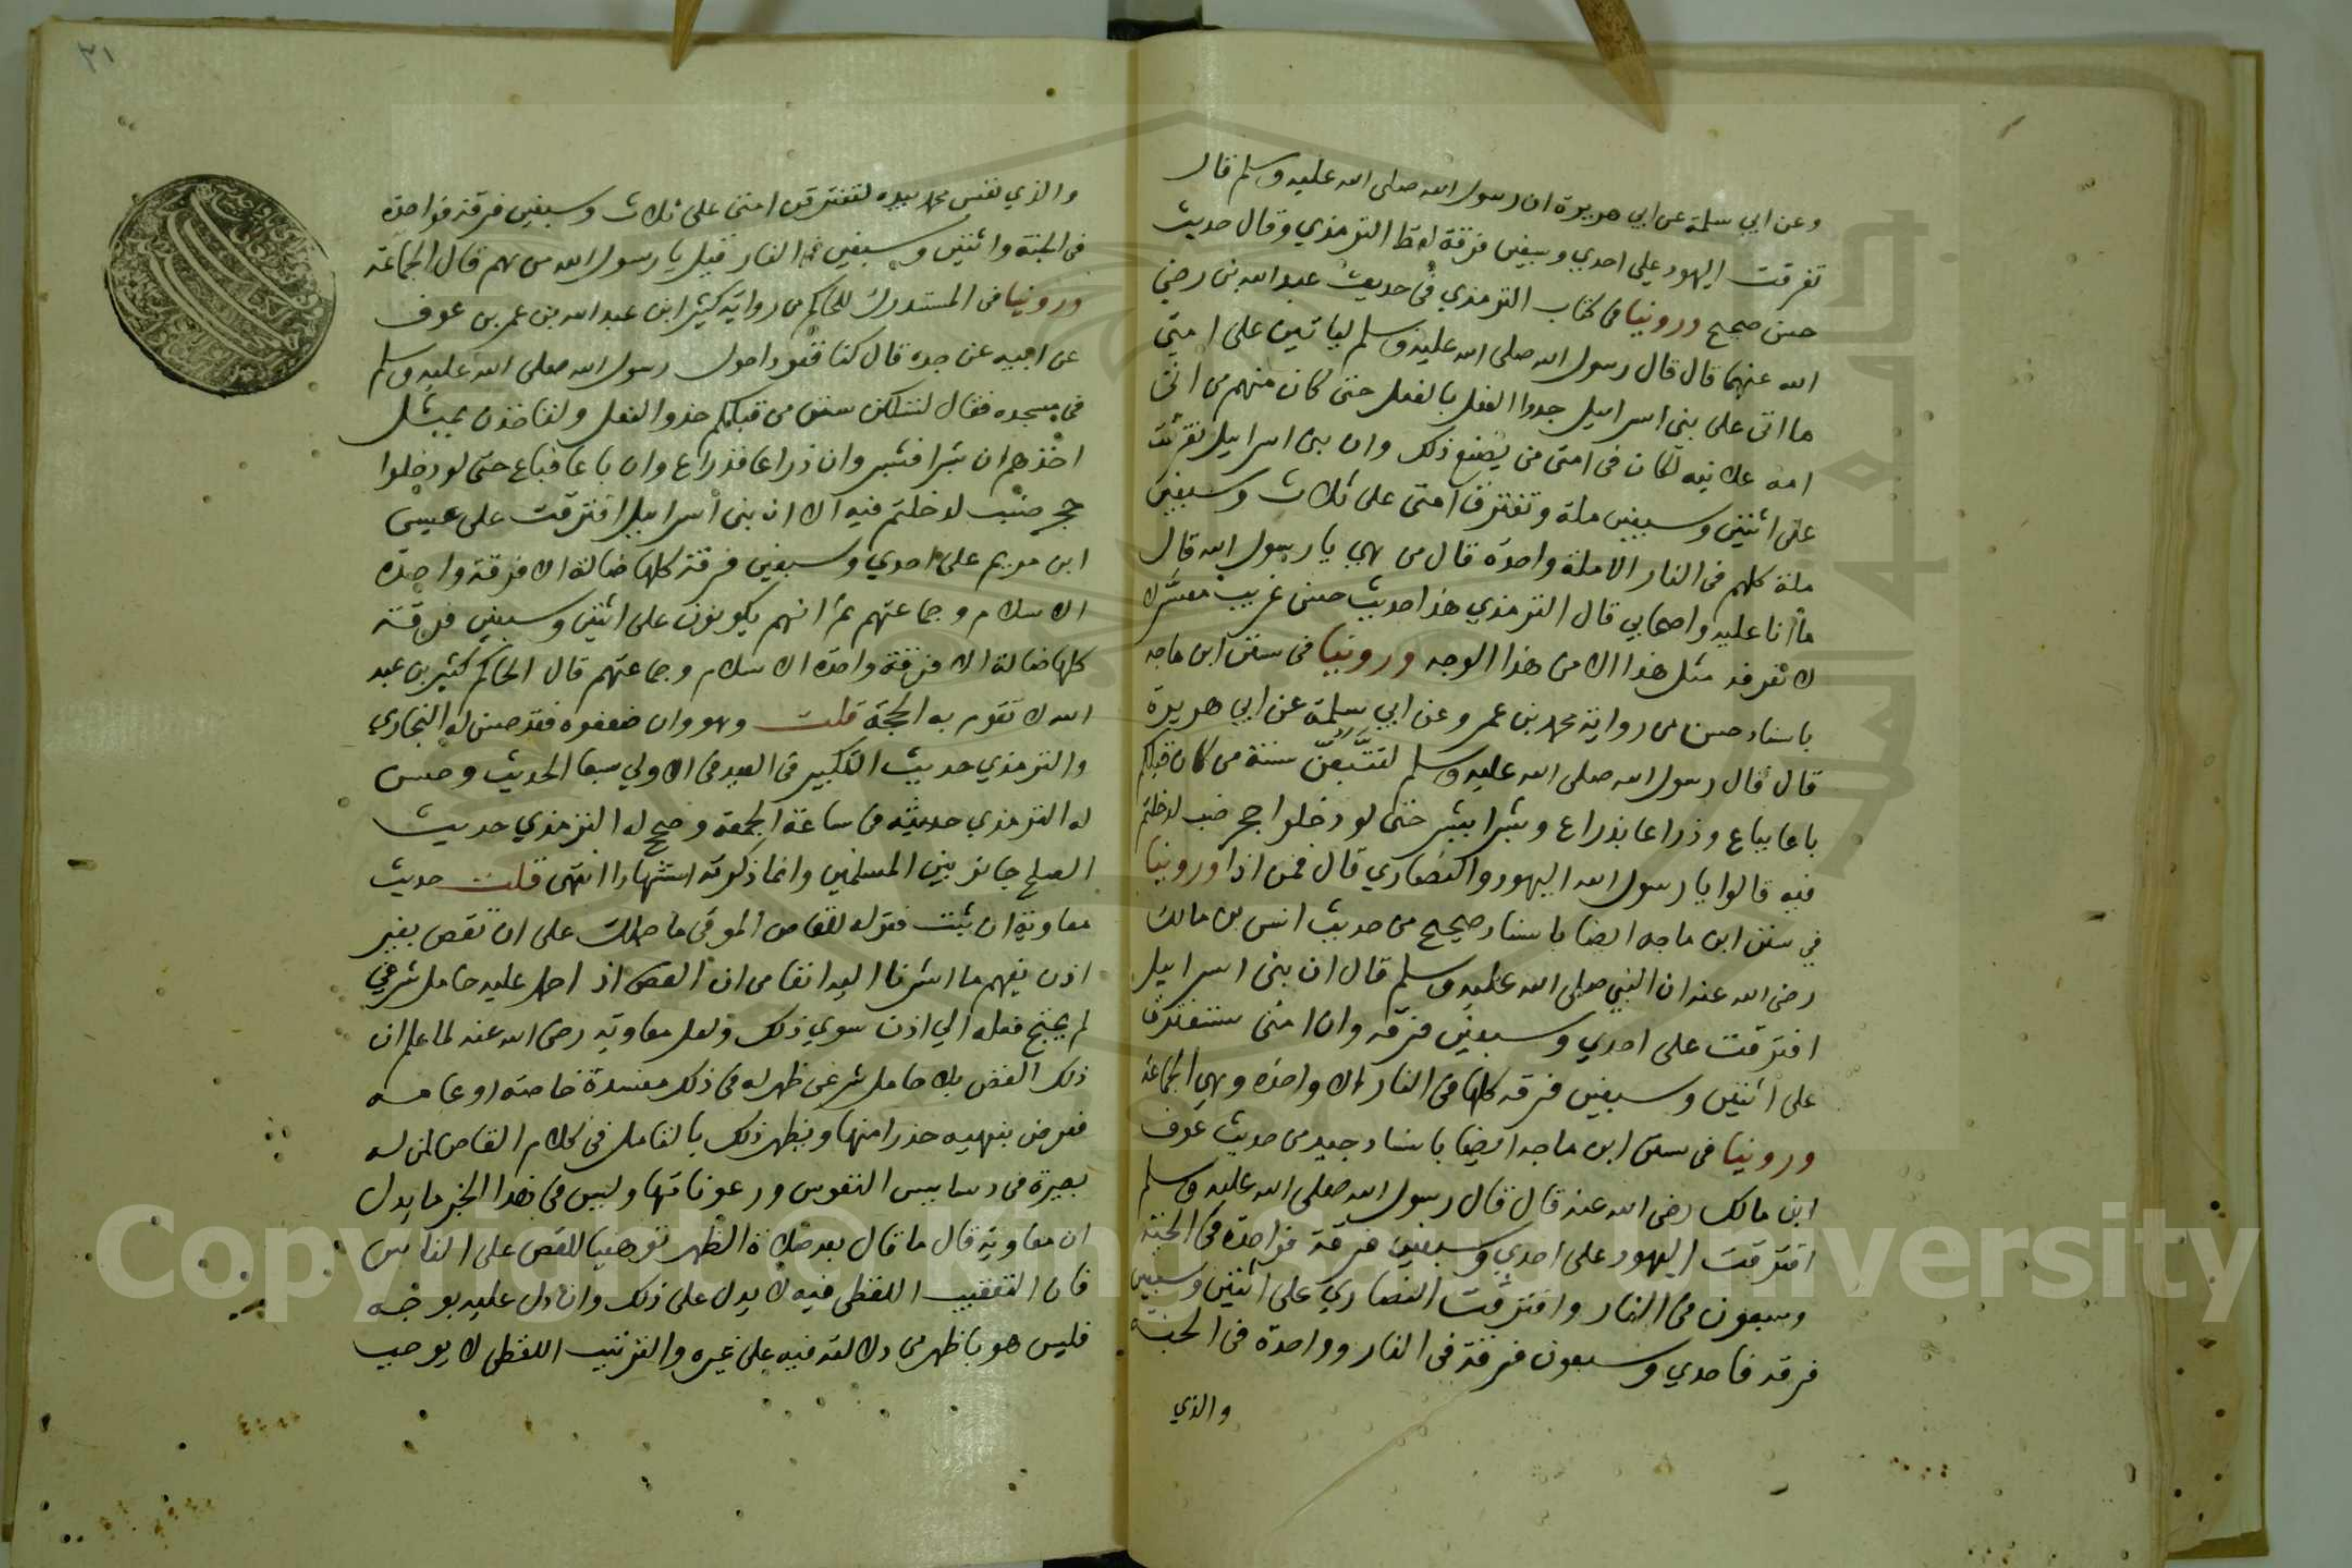 وعن ابي سلمة عن ابي هريرة ان رسول الله صلى الله عليه وسلم قال
تفرقت اليهود علي احدي وسبعين فرقة لفظ الترمذي وقال حديث
حسن صحيح وروينا في كتاب الترمذي في حديث عبد الله بن رضي
الله عنهما قال قال رسول الله صلى الله عليه وسلم لياتين على امتي
ما اتى على بني اسراييل حدوا النعل بالنعل حتى كان منهم من اتى
امه علانيه لكان في امتي من يصنع ذلك وان بني اسراييل تفرقت
على اثنتين وسبعين ملة وتفترق امتي على ثلاث وسبعين
ملة كلهم في النار الا ملة واحدة قال من هي يا رسول الله قال
ما انا عليه واصحابي قال الترمذي هذا حديث حسن غريب مفسر لا
لا نعرفه مثل هذا الا من هذا الوجه وروينا في سنن ابن ماجه
باسناد حسن من رواية محمد بن عمر وعن ابي سلمة عن ابي هريرة
قال قال رسول الله صلى الله عليه وسلم لتتبعن سنة من كان قبلكم
باعا بباع وذراعا بذراع وشبرا بشبر حتى لو دخلوا جحر ضب لدخلتم
فيه قالوا يا رسول الله اليهود والنصاري قال فمن اذا وروينا
في سنن ابن ماجه ايضا باسناد صحيح من حديث انس بن مالك
رضي الله عنه ان النبي صلى الله عليه وسلم قال ان بني اسراييل
افترقت على احدي وسبعين فرقه وان امتي ستفترق
على اثنتين وسبعين فرقه كلها في النار الا واحدة وهي الجماعة
وروينا في سنن ابن ماجه ايضا باسناد جيد من حديث عوف
ابن مالك رضي الله عنه قال قال رسول الله صلى الله عليه وسلم
افترقت اليهود على احدي وسبعين فرقة فواحدة في الجنة
وسبعون في النار وافترقت النصاري على اثنتين وسبعين
فرقه فاحدي وسبعون فرقة في النار وواحدة في الجنة
والذي
٣١
والذي نفس محمد بيده لتفترقن امتي على ثلاث وسبعين فرقة فواحدة
في الجنة واثنتين وسبعين في النار قيل يا رسول الله من هم قال الجماعة
وروينا في المستدرك للحاكم من رواية كثير ابن عبد الله بن عمر بن عوف
عن ابيه عن جده قال كنا قعودا حول رسول الله صلى الله عليه وسلم
في مسجده فقال لتسلكن سنن من قبلكم حذو النعل ولتاخذن بمثل
اخذهم ان شبرا فشبر وان ذراعا فذراع وان باعا فباع حتى لو دخلوا
جحر ضب لدخلتم فيه الا ان بني اسراييل افترقت على عيسى
ابن مريم على احدي وسبعين فرقة كلها ضالة الا فرقة واحدة
الاسلام وجماعتهم ثم انهم يكونون على اثنتين وسبعين فرقة
كلها ضالة الا فرقة واحدة الاسلام وجماعتهم قال الحاكم كثير بن عبد
الله لا تقوم به الحجة قلت وهو وان ضعفوه فقد حسن له البخاري
والترمذي حديث التكبير في العيد في الاولي سبعا الحديث وحسن
له الترمذي حديثه في ساعة الجمعة وصحح له الترمذي حديث
الصلح جائز بين المسلمين وانما ذكرته استشهادا انتهى قلت حديث
معاوية ان ثبت فقوله للقاص الموقى ما حملك على ان تقص بغير
اذن يفهم ما اشرنا اليه انفا من ان القص اذ احمل عليه حامل شرعي
لم يحتج فعله الي اذن سوي ذلك ولعل معاوية رضي الله عنه لما علم ان
ذلك القص بلا حامل شرعي ظهر له في ذلك مفسدة خاصة او عامه
فعرض بنهيه حذرا منها ويظهر ذلك بالتامل في كلام القاص لمن له
بصيرة في دسايس النفوس ورعوناتها وليس في هذا الخبر ما يدل
ان معاوية قال ما قال بعد صلاة الظهر توهينا للقص على الناس
فان التعقيب اللفظي فيه لا يدل على ذلك وان دل عليه بوجه
فليس هو باظهر من دلالته فيه على غيره والترتيب اللفظي لا يوجب
Copyright © King Saud University